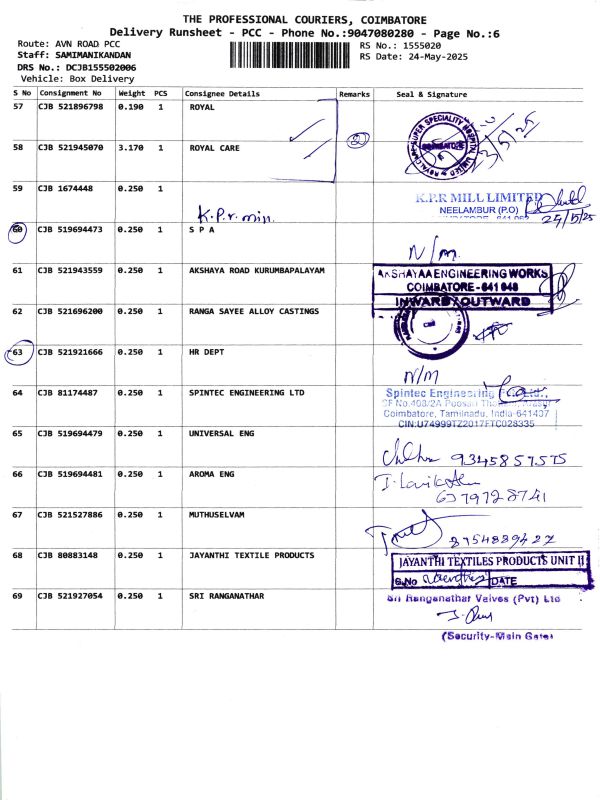 THE PROFESSIONAL COURIERS, COIMBATORE
Delivery Runsheet - PCC - Phone No.:9047080280 - Page No.:6
Route: AVN ROAD PCC
RS No.: 1555020
Staff: SAMIMANIKANDAN
RS Date: 24-May-2025
DRS No.: DCJB155502006
Vehicle: Box Delivery
S No Consignment No Weight PCS Consignee Details Remarks Seal & Signature
57 CJB 521896798 0.190 1 ROYAL
2
58 CJB 521945070 3.170 1 ROYAL CARE
COIMBATORE
59 CJB 1674448 0.250 1
K.P.r. min.
K.P.R MILL LIMITED
NEELAMBUR (P.O)
24/5/25
60 CJB 519694473 0.250 1 S P A
N/m.
61 CJB 521943559 0.250 1 AKSHAYA ROAD KURUMBAPALAYAM
AKSHAYAA ENGINEERING WORKS
COIMBATORE - 641 048
INWARD / OUTWARD
62 CJB 521696200 0.250 1 RANGA SAYEE ALLOY CASTINGS
63 CJB 521921666 0.250 1 HR DEPT
N/M
64 CJB 81174487 0.250 1 SPINTEC ENGINEERING LTD
Spintec Engineering
SF No.408/2A
Coimbatore, Tamilnadu, India-641407
CIN:U74999TZ2017FTC028335
65 CJB 519694479 0.250 1 UNIVERSAL ENG
9345857575
66 CJB 519694481 0.250 1 AROMA ENG
6379728741
67 CJB 521527886 0.250 1 MUTHUSELVAM
68 CJB 80883148 0.250 1 JAYANTHI TEXTILE PRODUCTS
JAYANTHI TEXTILES PRODUCTS UNIT II
S.No DATE
69 CJB 521927054 0.250 1 SRI RANGANATHAR
Sri Ranganathar Valves (Pvt) Ltd
(Security-Main Gate)